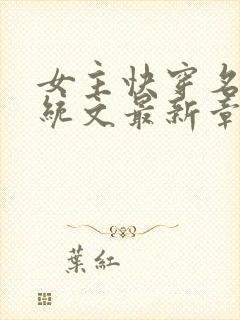 女主快穿名
統文最新章
葉紅